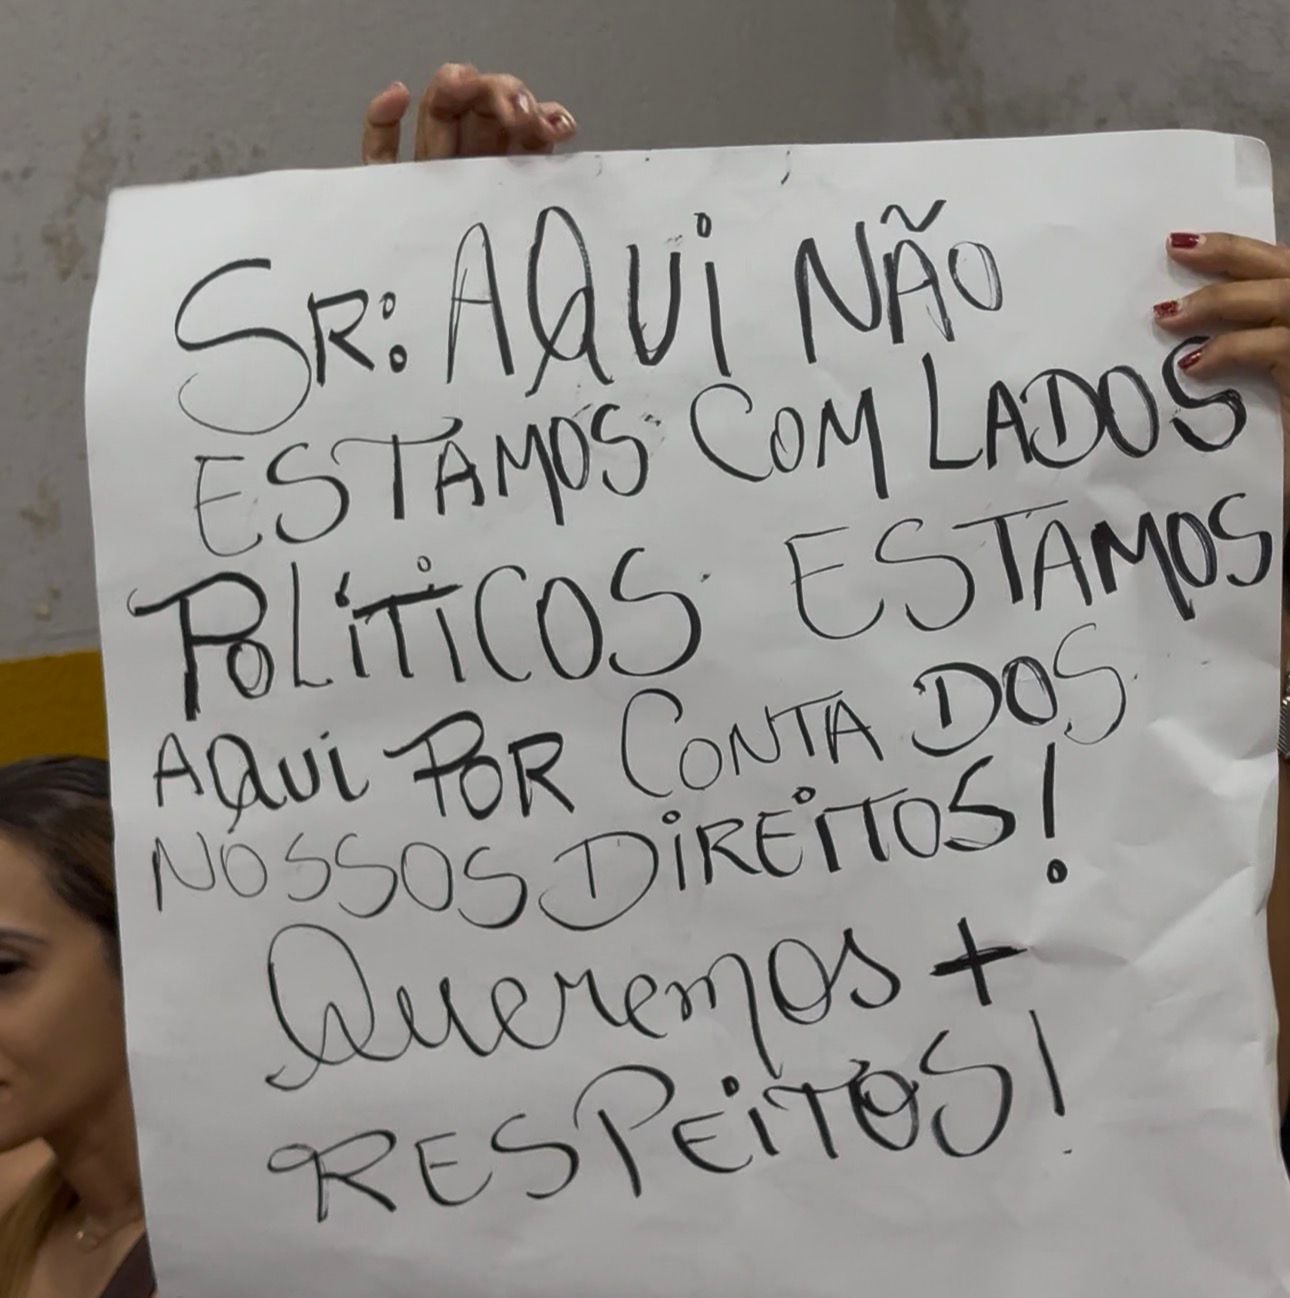 SR: AQUI NÃO
ESTAMOS COM LADOS
POLÍTICOS ESTAMOS
AQUI POR CONTA DOS
NOSSOS DIREITOS!
Queremos +
RESPEITOS!